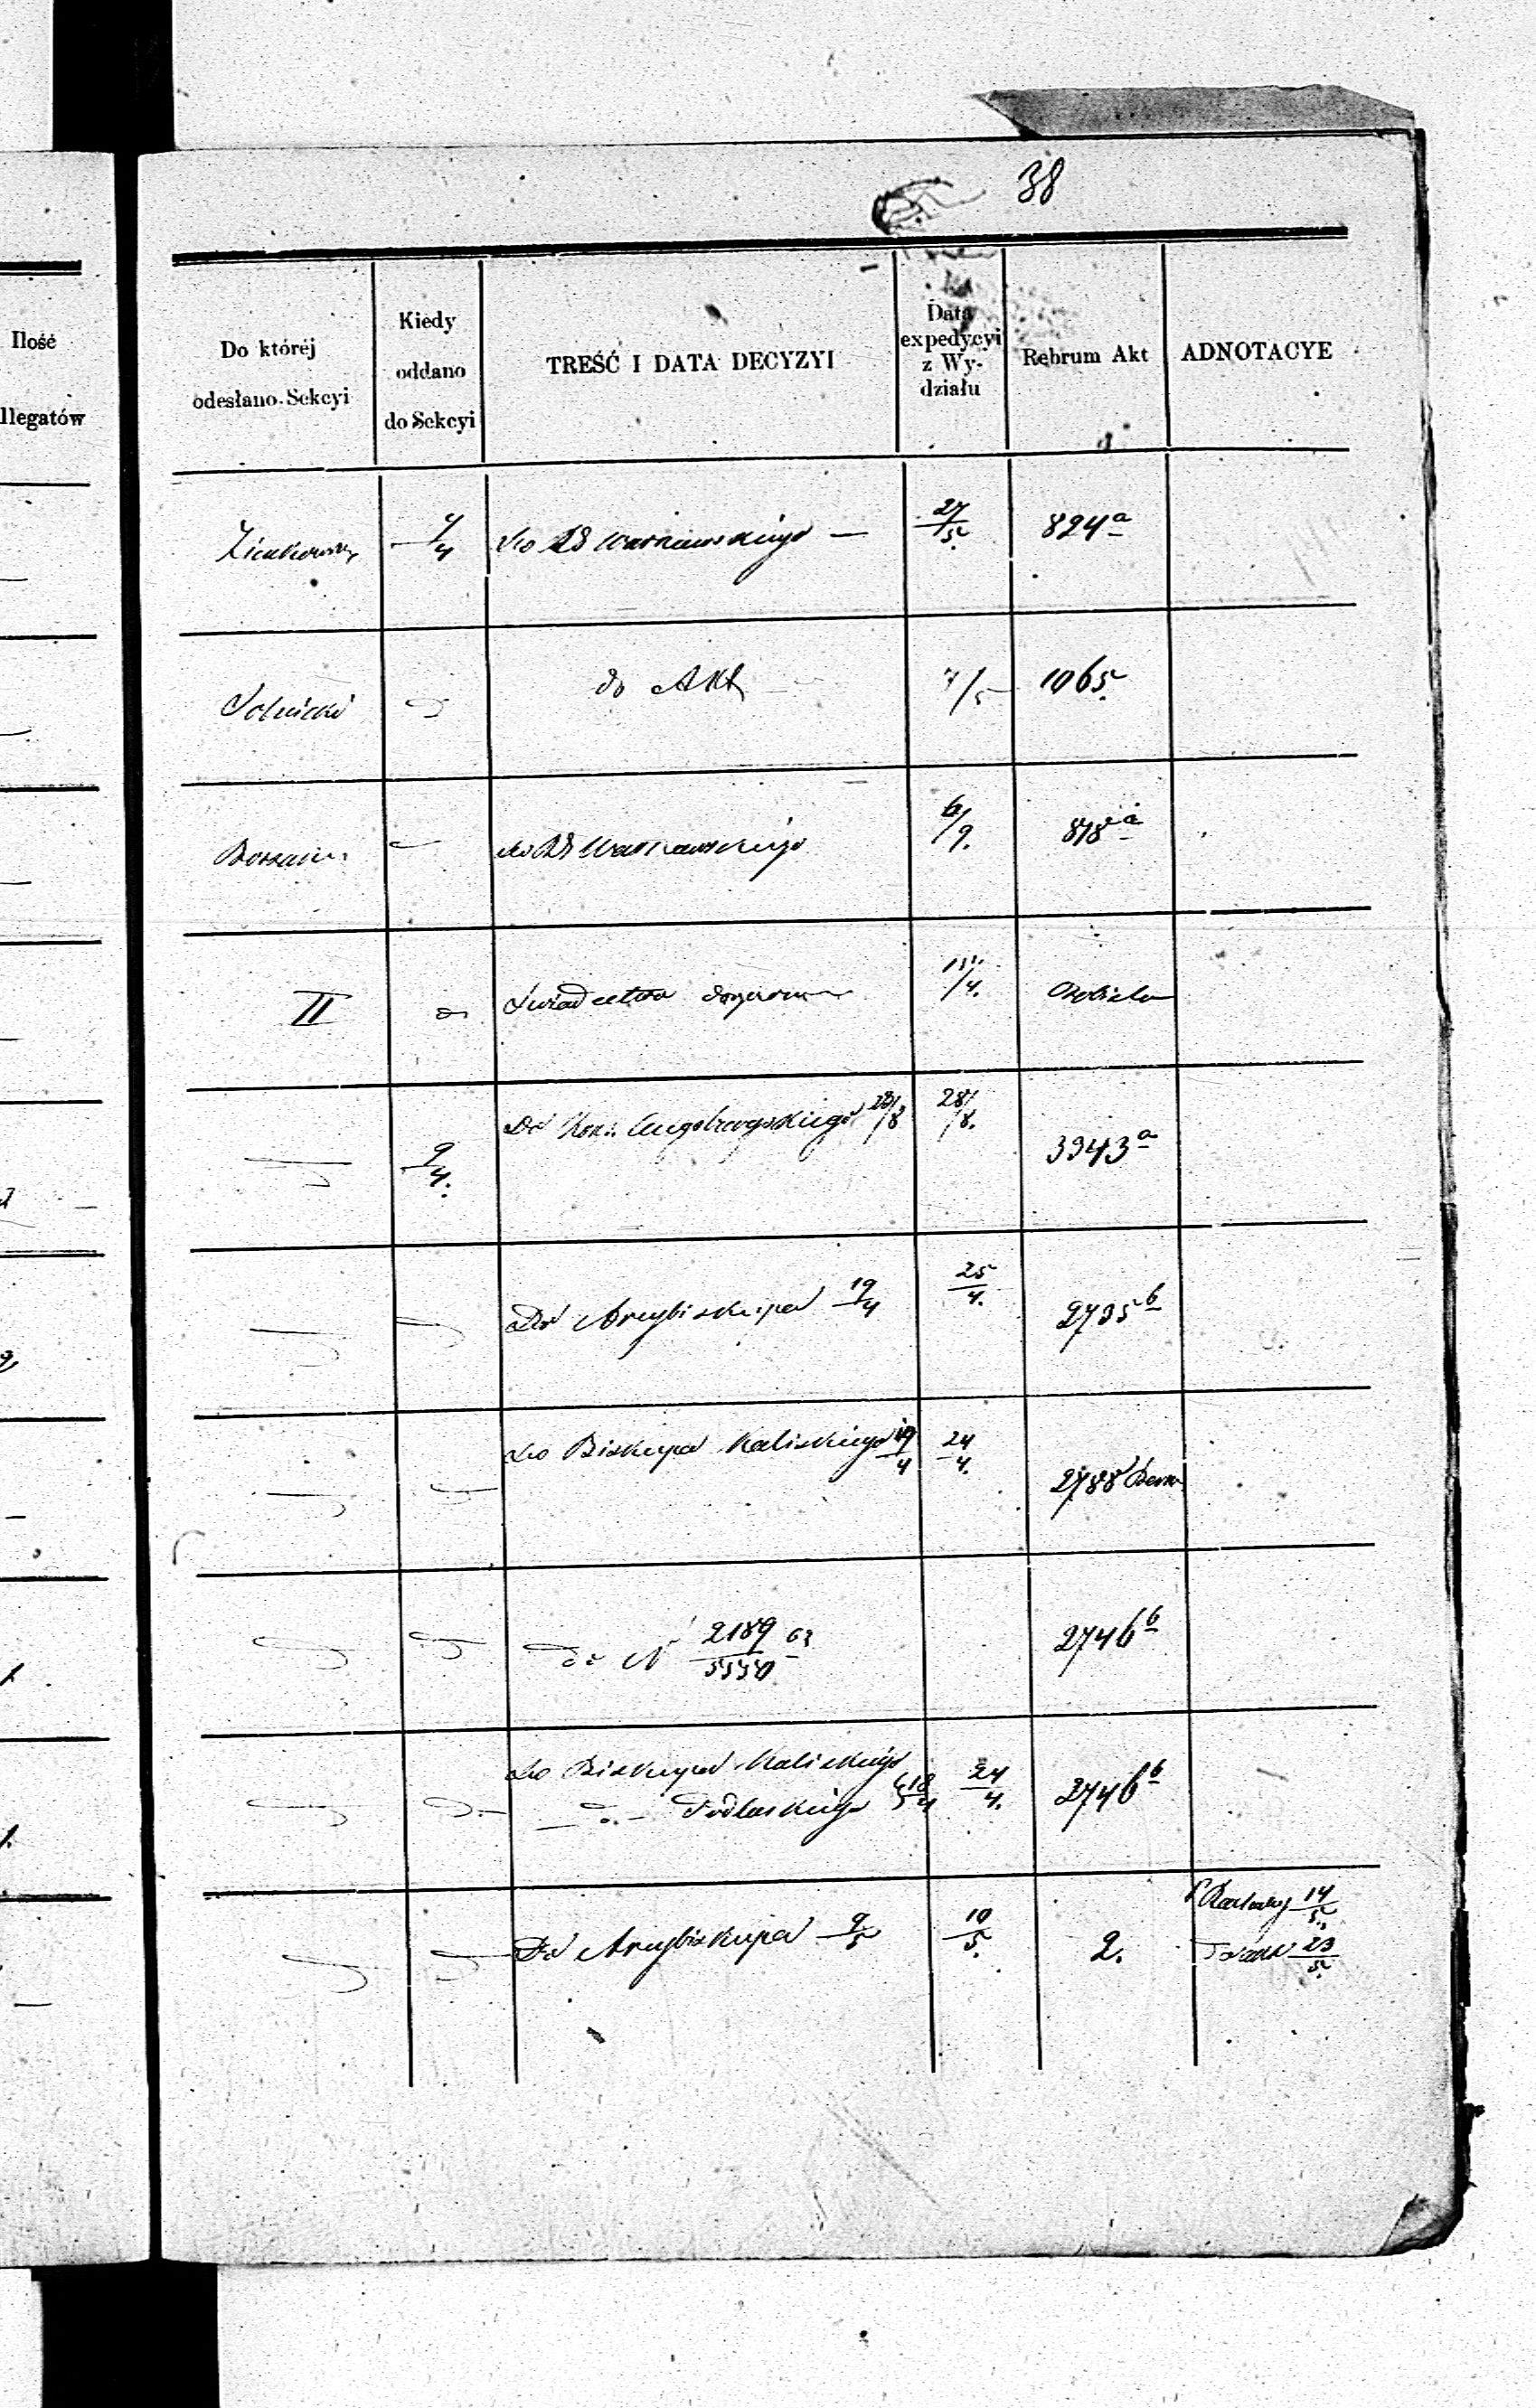 38
Ilość
llegatów
Do któréj
odesłano Sekcyi
Kiedy
oddano
do Sekcyi
TREŚĆ I DATA DECYZYI
Data
expedycyi
z Wy-
działu
Rebrum Akt
ADNOTACYE
4/4 Do Warszawskiego — 27/5 824 a
do Akt 7/5 1065
do Warszawskiego 6/9. 818 a
II do Świadectwo 11/4.
9/4. Do Kons. Augsburgskiego 28/8 28/8. 3943 a
Do Arcybiskupa 19/4 25/4. 2735 b
Do Biskupa Kaliskiego 19/4 24/4. 2788
do N 2189/5550 63 2746 b
Do Biskupa Kaliskiego
— do — Podlaskiego 18/4 24/4. 2746 b
Do Arcybiskupa 9/5 10/5. 2. 14/5
23/5